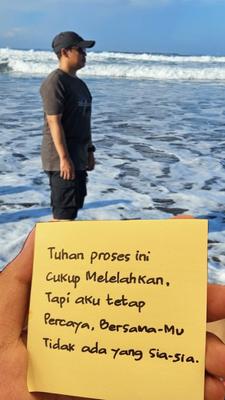 Tuhan proses ini
cukup Melelahkan,
Tapi aku tetap
Percaya, Bersama-Mu
Tidak ada yang sia-sia.